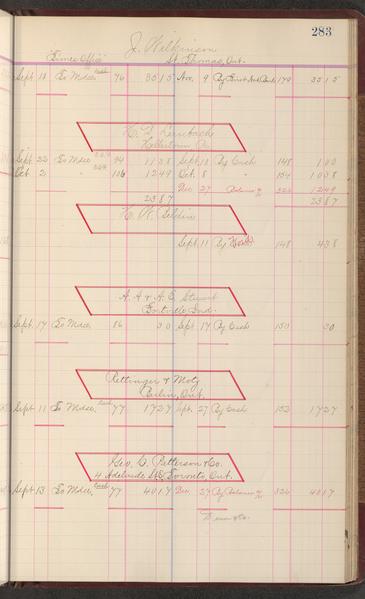 283
J. Wilkinson
Times Office St. Thomas, Ont.
Sept 18 To Mdse 96 3515 Nov. 9 By 179 3515
H. 
Hellertown Pa.
Sept 22 To Mdse 94 1138 Sept. 10 By Cash 148 100
Oct 2 " 106 1249 Oct. 8 " 164 1038
Dec 27 Balance 326 1249
2387 2387
H. W. 
Sept. 11 By 148 438
A. A. & A. E. Stewart
Fortville, Ind.
Sept. 17 To Mdse. 86 30 Sept 17 By Cash 150 30
Rettinger & Motz
Berlin, Ont.
Sept. 11 To Mdse. 77 1727 Sept. 27 By Cash 153 1727
Geo. C. Patterson & Co.
4 Adelaide St. E. Toronto, Ont.
Sept 13 To Mdse. 77 4017 Dec 27 By Balance 326 4017